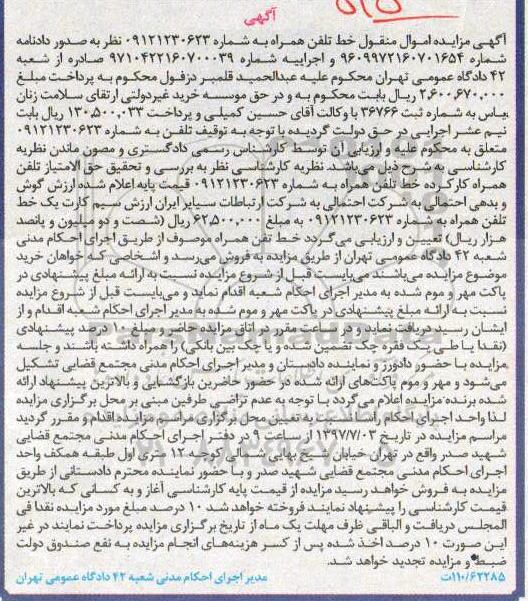 آگهی
آگهی مزایده اموال منقول خط تلفن همراه به شماره ۰۹۱۲۱۲۳۰۶۲۳ نظر به صدور دادنامه
شماره ۹۶۰۹۹۷۲۱۶۰۷۰۱۶۵۴ و اجراییه شماره ۹۷۱۰۴۲۲۱۶۰۷۰۰۰۳۹ صادره از شعبه
۴۲ دادگاه عمومی تهران محکوم علیه عبدالحمید قلمبر دزفول محکوم به پرداخت مبلغ
۲,۶۰۰,۶۷۰,۰۰۰ ریال بابت محکوم به و در حق موسسه خرید غیردولتی ارتقای سلامت زنان
یاس به شماره ثبت ۳۶۷۶۶ با وکالت آقای حسین کمیلی و پرداخت ۱۳۰,۵۰۰,۰۳۳ ریال بابت
نیم عشر اجرایی در حق دولت گردیده با توجه به توقیف تلفن به شماره ۰۹۱۲۱۲۳۰۶۲۳
متعلق به محکوم علیه و ارزیابی آن توسط کارشناس رسمی دادگستری و مصون ماندن نظریه
کارشناسی به شرح ذیل می‌باشد. نظریه کارشناسی نظر به بررسی و تحقیق حق الامتیاز تلفن
همراه کارکرده خط تلفن همراه به شماره ۰۹۱۲۱۲۳۰۶۲۳ قیمت پایه اعلام شده ارزش گوش
و بدهی احتمالی به شرکت احتمالی به شرکت ارتباطات سیایر ایران ارزش سیم کارت یک خط
تلفن همراه به شماره ۰۹۱۲۱۲۳۰۶۲۳ به مبلغ ۶۲,۵۰۰,۰۰۰ ریال (شصت و دو میلیون و پانصد
هزار ریال) تعیین و ارزیابی می‌گردد خط تفن همراه موصوف از طریق اجرای احکام مدنی
شعبه ۴۲ دادگاه عمومی تهران از طریق مزایده به فروش می‌رسد و اشخاصی که خواهان خرید
موضوع مزایده می‌باشند می‌بایست قبل از شروع مزایده نسبت به ارائه مبلغ پیشنهادی در
پاکت مهر و موم شده به مدیر اجرای احکام شعبه اقدام نماید و می‌بایست قبل از شروع مزایده
نسبت به ارائه مبلغ پیشنهادی در پاکت مهر و موم شده به مدیر اجرای احکام شعبه اقدام و از
ایشان رسید دریافت نماید و راس ساعت مقرر در اتاق مزایده حاضر و مبلغ ۱۰ درصد پیشنهادی
(نقدا یا طی یک فقره چک تضمین شده و یا چک بین بانکی) را همراه داشته باشند و جلسه
مزایده با حضور دادورز و نماینده دادستان و مدیر اجرای احکام مدنی مجتمع قضایی تشکیل
می‌شود و مهر و موم پاکت‌های ارائه شده در حضور حاضرین بازگشایی و بالاترین پیشنهاد ارائه
شده برنده مزایده اعلام می‌گردد با توجه به عدم تراضی طرفین مبنی بر محل برگزاری مزایده
لذا واحد اجرای احکام راسا نسبت به تعیین محل برگزاری مراسم مزایده اقدام و مقرر گردید
مراسم مزایده در تاریخ ۱۳۹۷/۷/۰۳ از ساعت ۹ در دفتر اجرای احکام مدنی مجتمع قضایی
شهید صدر واقع در تهران خیابان شیخ بهایی شمالی کوچه ۱۲ متری اول طبقه همکف واحد
اجرای احکام مدنی مجتمع قضایی شهید صدر و با حضور نماینده محترم دادستانی از طریق
مزایده به فروش خواهد رسید مزایده از قیمت پایه کارشناسی آغاز و به کسانی که بالاترین
قیمت کارشناسی را پیشنهاد نمایند فروخته خواهد شد ۱۰ درصد مبلغ مورد مزایده نقدا فی
المجلس دریافت و الباقی ظرف مهلت یک ماه از تاریخ برگزاری مزایده پرداخت نمایند در غیر
این صورت ۱۰ درصد اخذ شده پس از کسر هزینه‌های انجام مزایده به نفع صندوق دولت
ضبط و مزایده تجدید خواهد شد.
۱۱۰/۶۲۲۸۵ت مدیر اجرای احکام مدنی شعبه ۴۲ دادگاه عمومی تهران